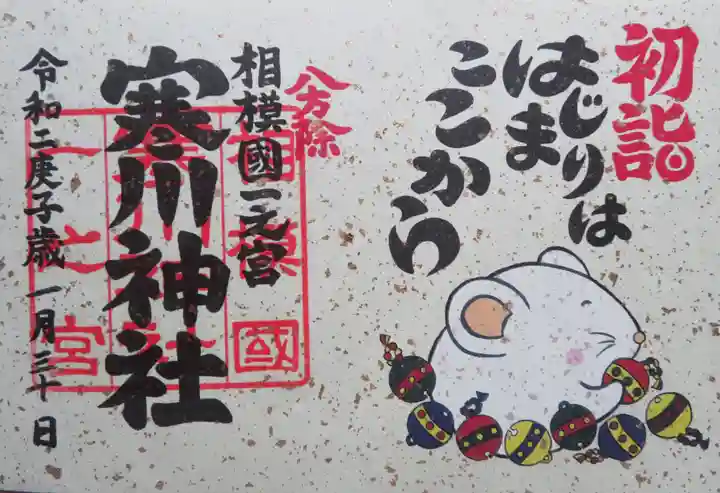 初詣
はじりは
はま
ここから
八方除
相模國一之宮
寒川神社
令和二庚子歳 一月三十日
相模國
一之宮